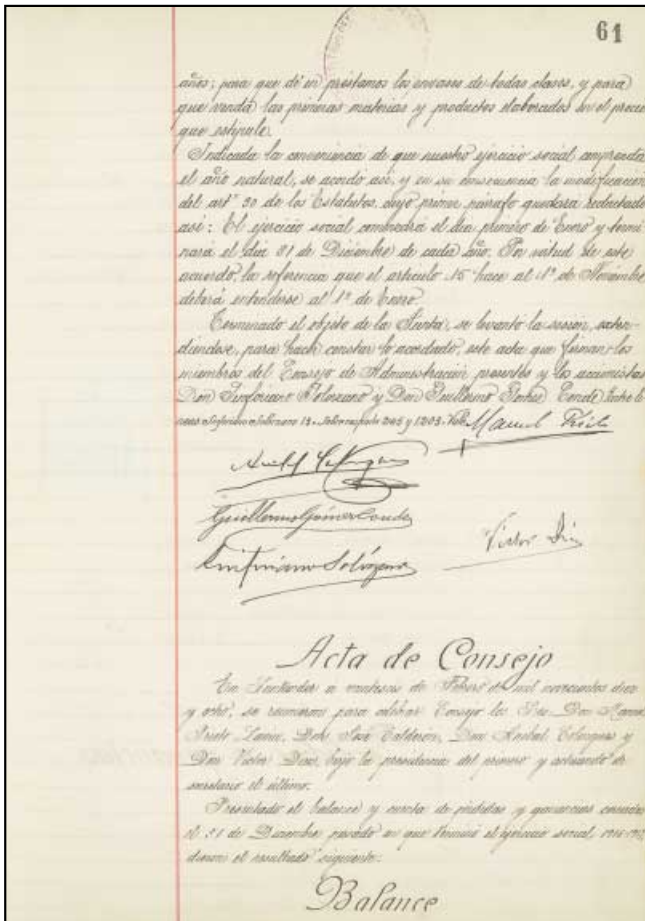 61
años; para que dé en préstamos los envases de todas clases, y para
que venda las primeras materias y productos elaborados en el precio
que estipule.
Indicada la conveniencia de que nuestro ejercicio social comprenda
el año natural, se acordó así, y en su consecuencia la modificación
del artº 30 de los Estatutos, cuyo primer párrafo quedará redactado
así: El ejercicio social comenzará el día primero de Enero y termi
nará el día 31 de Diciembre de cada año. Por virtud de este
acuerdo, la referencia que el artículo 15 hace al 1º de Noviembre
deberá entenderse al 1º de Enero.
Terminado el objeto de la Junta, se levantó la sesión, exten-
diéndose, para hacer constar lo acordado, este acta que firman los
miembros del Consejo de Administración presentes y los accionistas
Don Sinforiano Solorzano y Don Guillermo Conde Entre lí
neas Sinforiano Solorzano 13. 205 y 1203. Vale Manuel Prieto
Guillermo Gómez Conde
Víctor
Sinforiano Solórzano
Acta de Consejo
En Santander a de Febrero de mil novecientos diez
y ocho, se reunieron para celebrar Consejo los Sres. Don Manuel
Prieto Lavín, Don José Calderón, Don Anibal y
Don Víctor Díaz, bajo la presidencia del primero y actuando de
secretario el último.
Presentado el balance y cuenta de pérdidas y ganancias
el 31 de Diciembre pasado en que terminó el ejercicio social,
dieron el resultado siguiente:
Balance